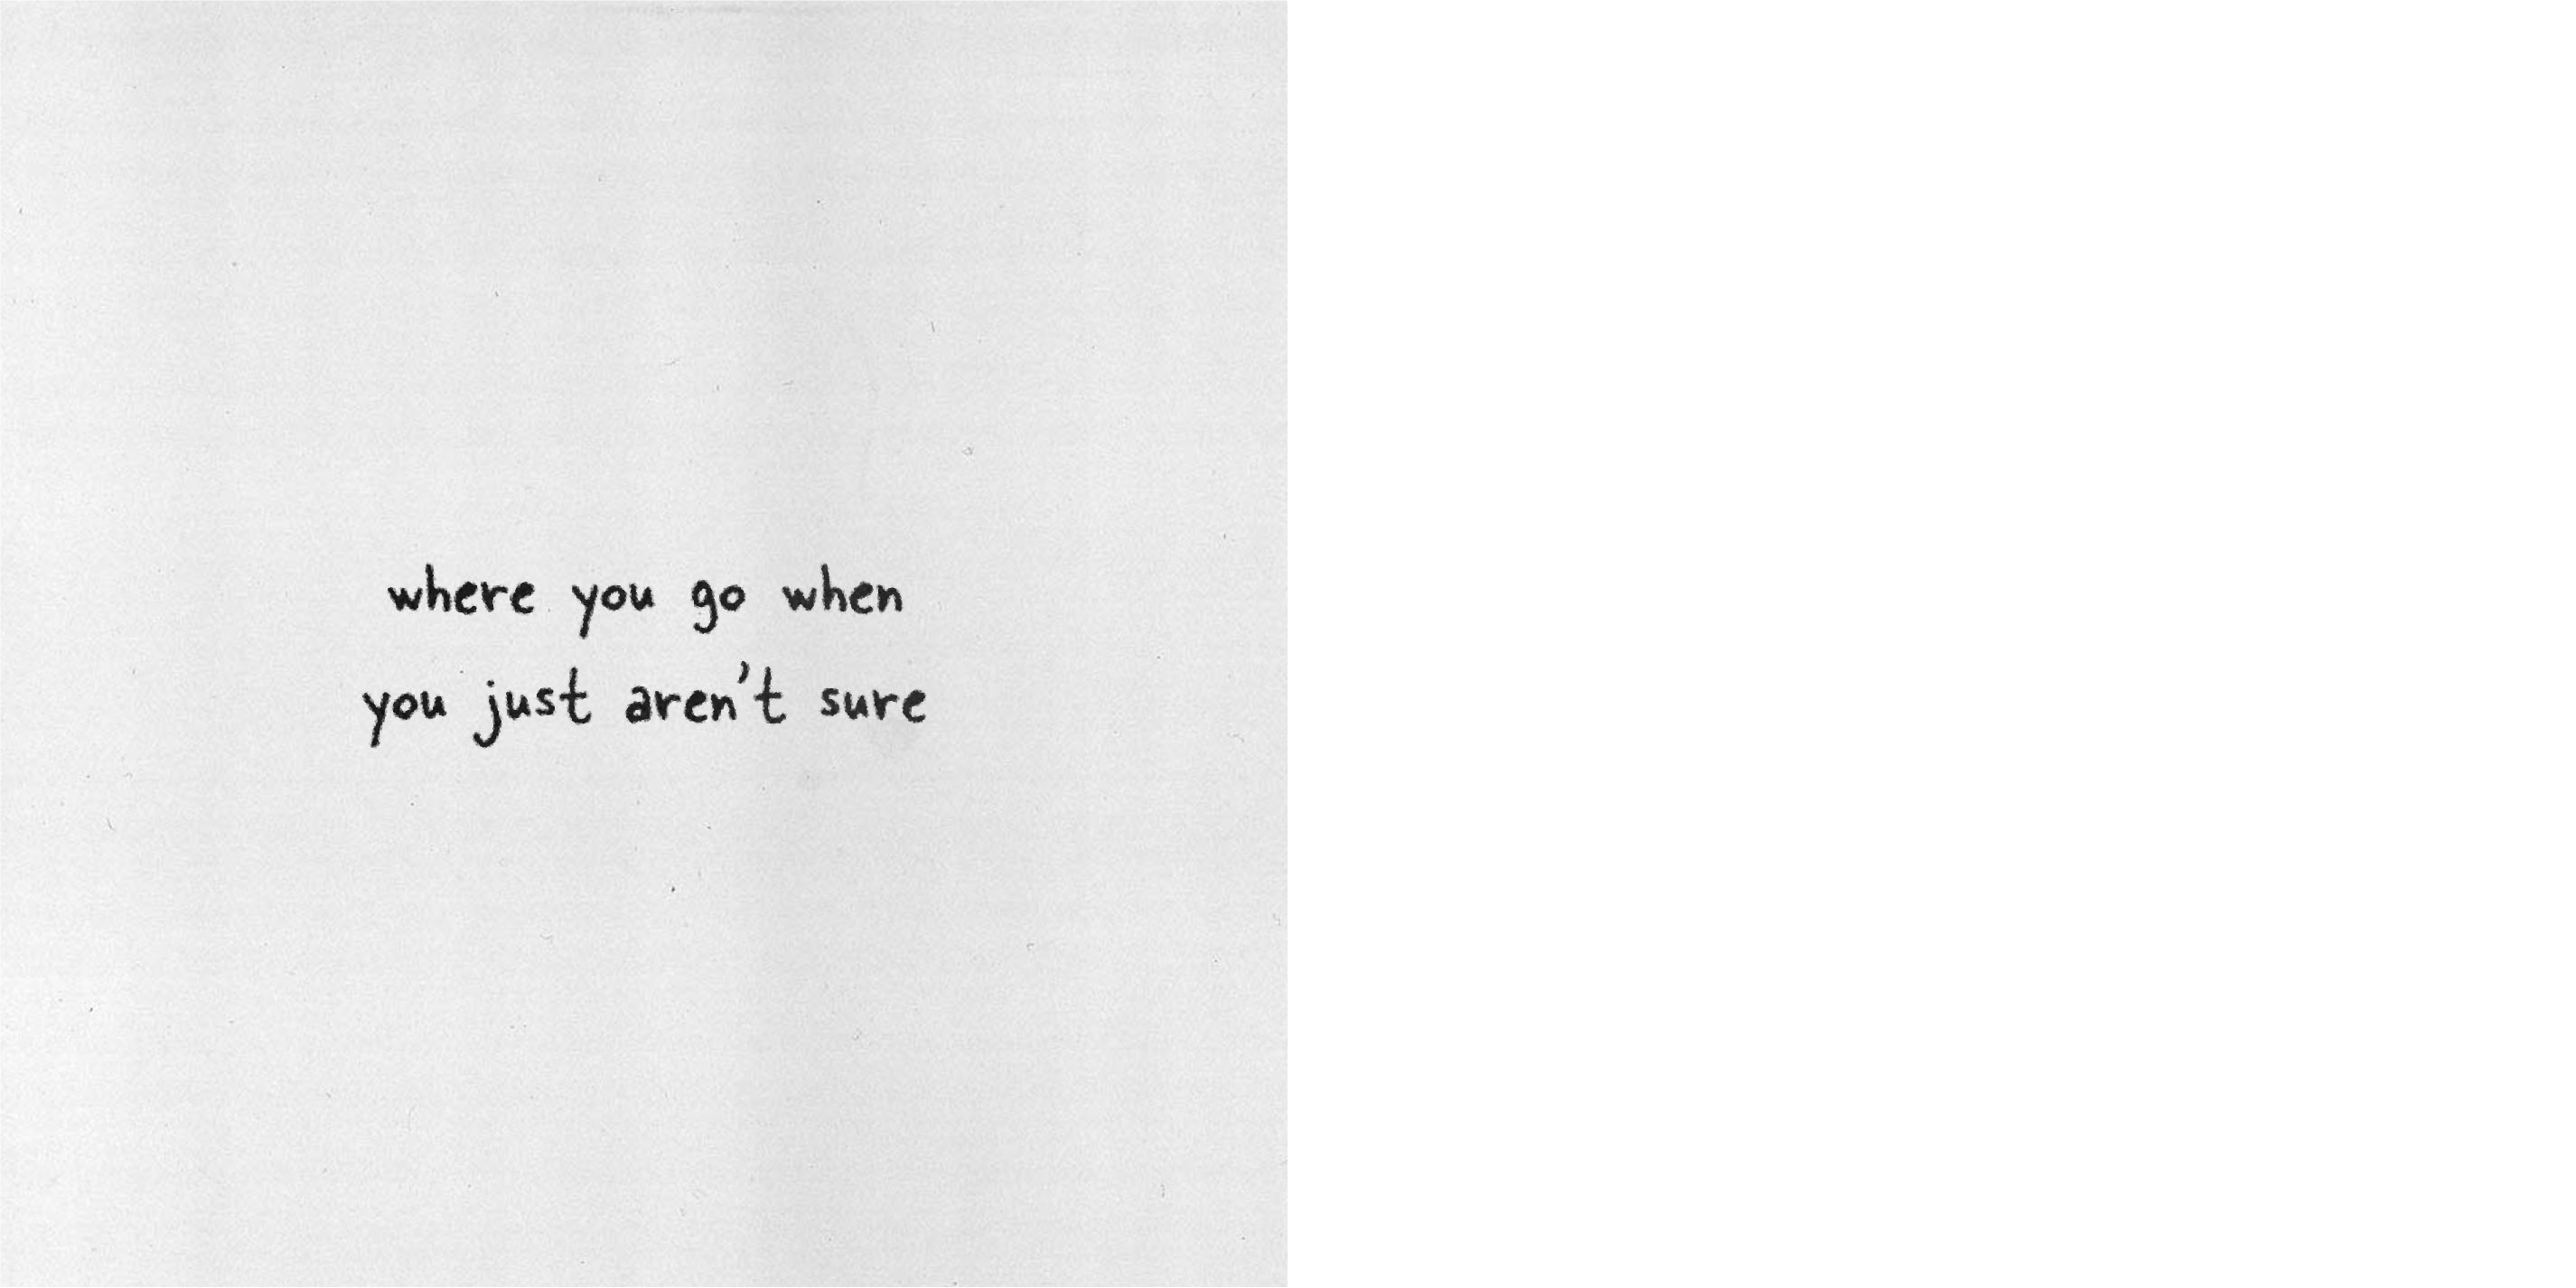 where you go when
you just aren't sure